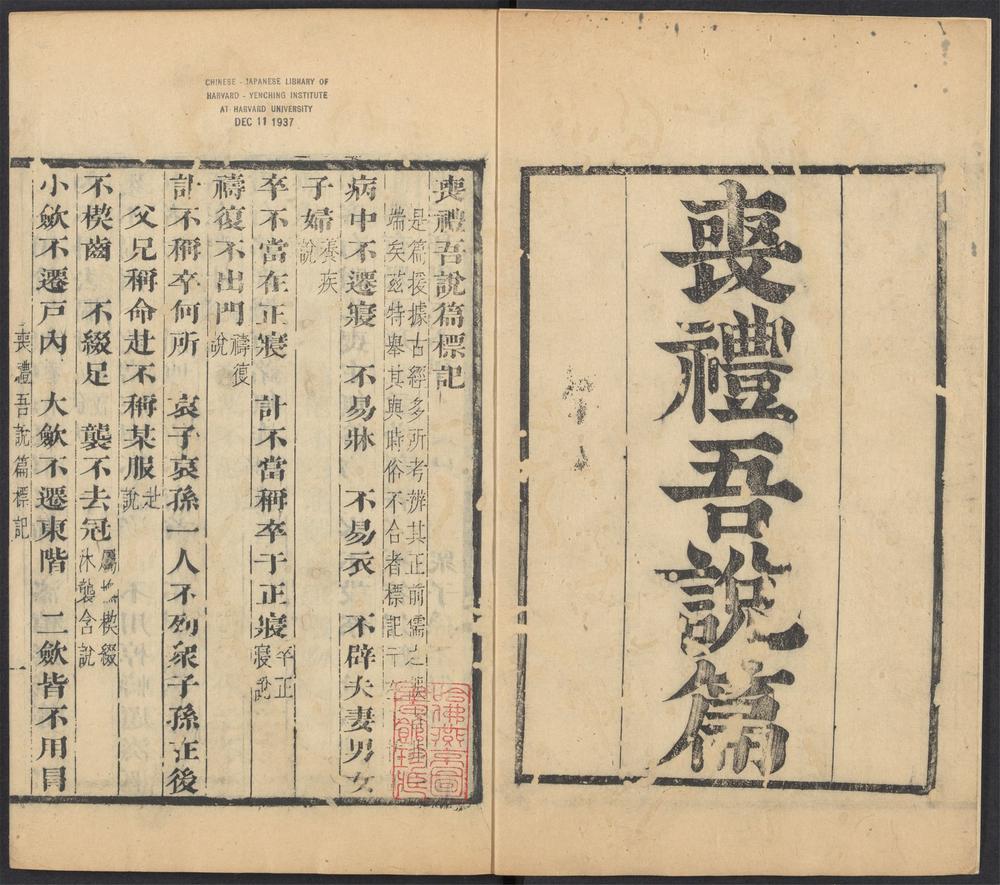 喪禮吾說篇
CHINESE - JAPANESE LIBRARY OF
HARVARD - YENCHING INSTITUTE
AT HARVARD UNIVERSITY
DEC 11 1937
喪禮吾說篇標記
是篇援據古經多所考辨其正前儒之
端矣茲特舉其與時俗不合者標記于
病中不遷寢 不易牀 不易衣 不辟夫妻男女
子婦養疾說
卒不當在正寢 訃不當稱卒于正寢卒正寢說
禱復不出門禱復說
訃不稱卒何所 哀子哀孫一人不列衆子孫在後
父兄稱命赴不稱某服赴說
不楔齒 不綴足 襲不去冠屬楔綴沐襲含說
小斂不遷戶內 大斂不遷東階 二斂皆不用冒
喪禮吾說篇標記
一
哈佛燕京圖書館珍藏